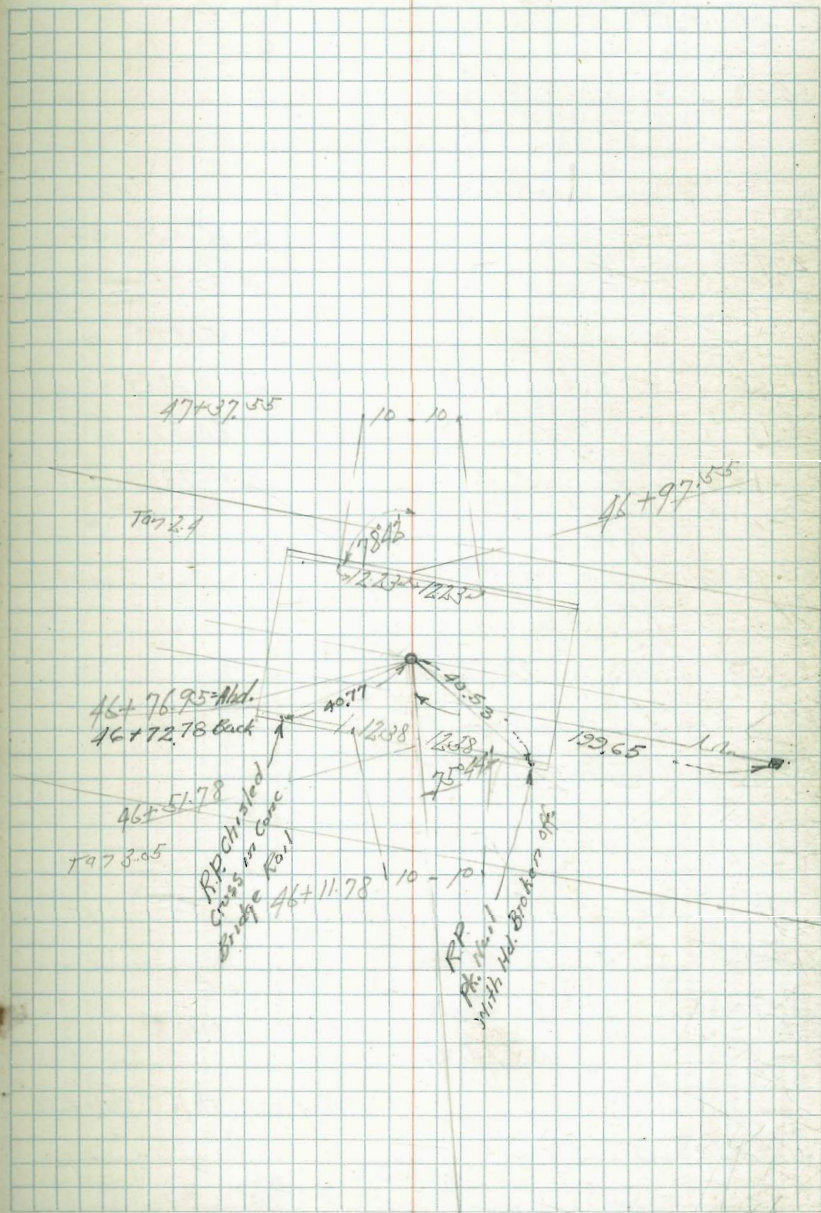 47+37.55
10 - 10
46+97.55
Tan 2.4
12.23 12.23
46+76.95=Ahd.
46+72.78 Back
40.77
40.53
12.38
12.38
199.65
75°44'
46+51.78
Tan 3.05
R.P. Chisled
Cross in Conc
Bridge Rail
46+11.78
10 - 10
R.P.
Pk. Nail
With Hd. Broken off.